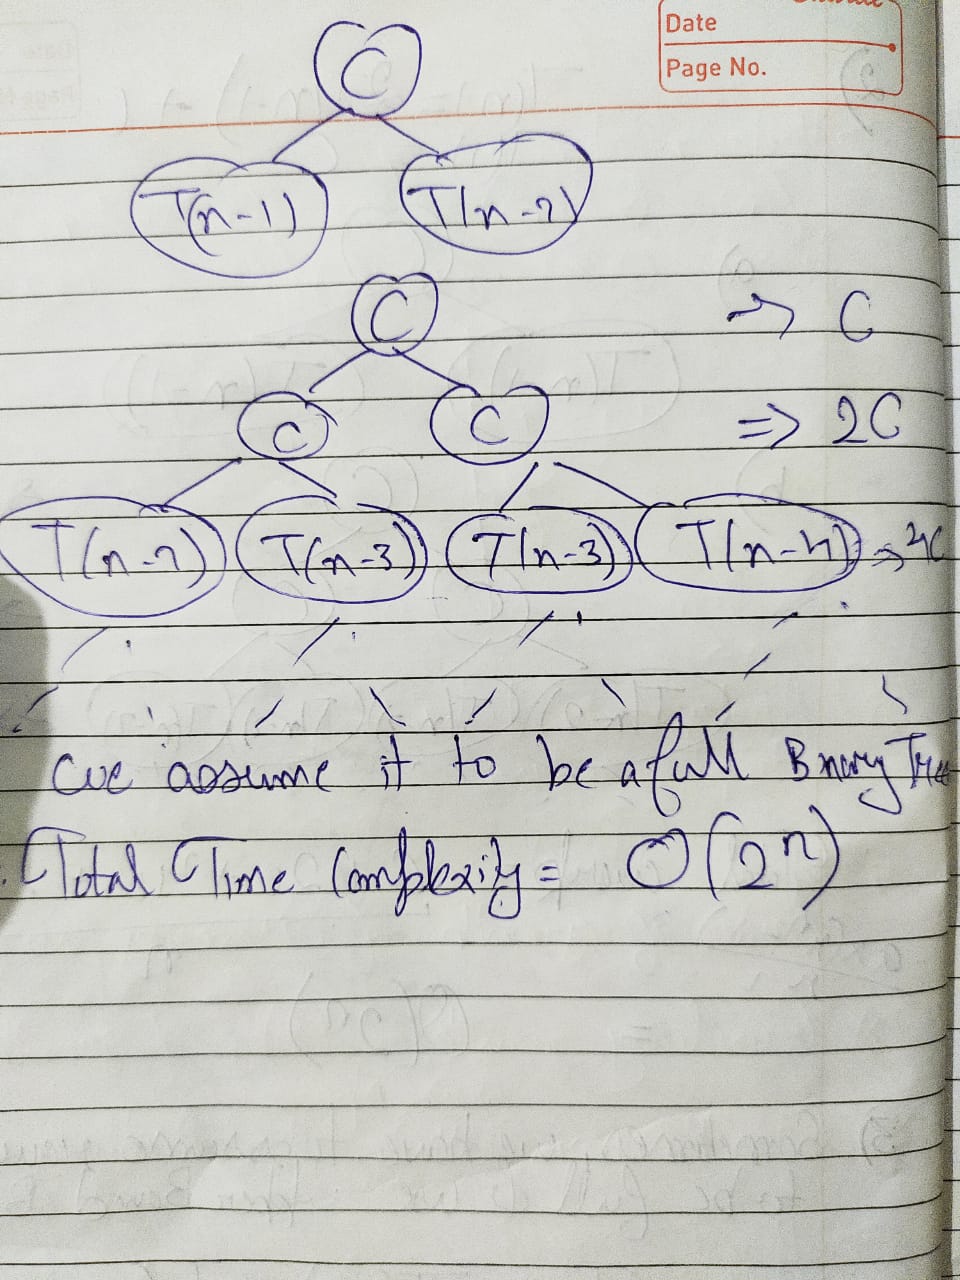 Date
Page No.
C
T(n-1) T(n-2)
C → C
C C => 2C
T(n-2) T(n-3) T(n-3) T(n-4) → 4C
we assume it to be a full Binary Tree
Total Time Complexity = O(2ⁿ)